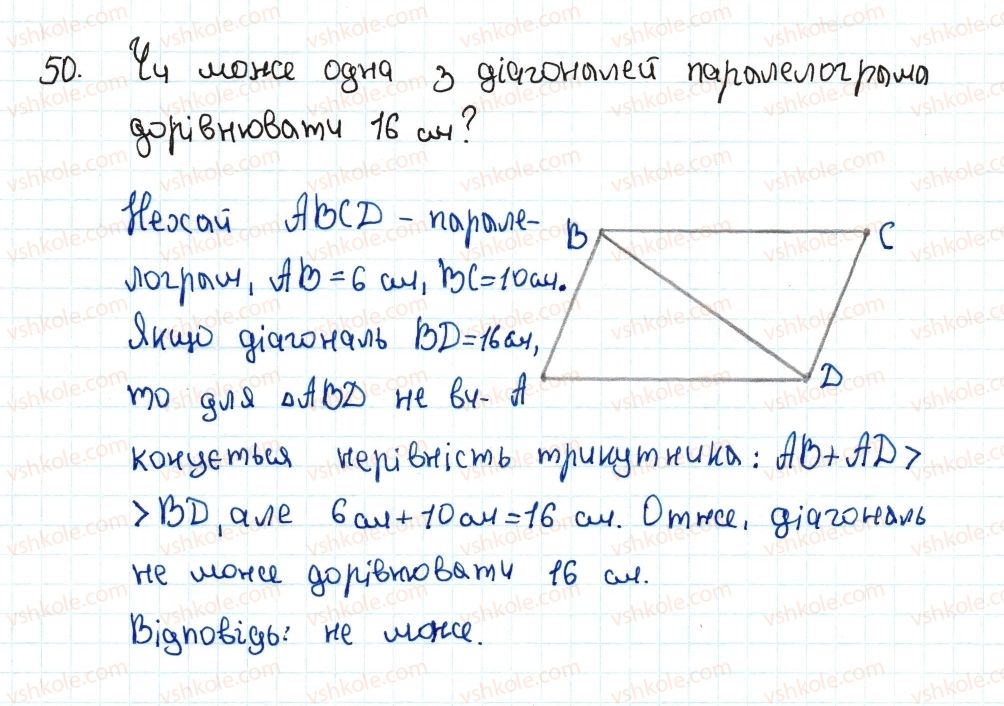 50. Чи може одна з діагоналей паралелограма
дорівнювати 16 см?
Нехай ABCD - парале-
лограм, AB = 6 см, BC = 10 см.
Якщо діагональ BD = 16 см,
то для △ABD не ви-
конується нерівність трикутника: AB + AD >
> BD, але 6 см + 10 см = 16 см. Отже, діагональ
не може дорівнювати 16 см.
Відповідь: не може.
B
C
A
D
vshkole.com